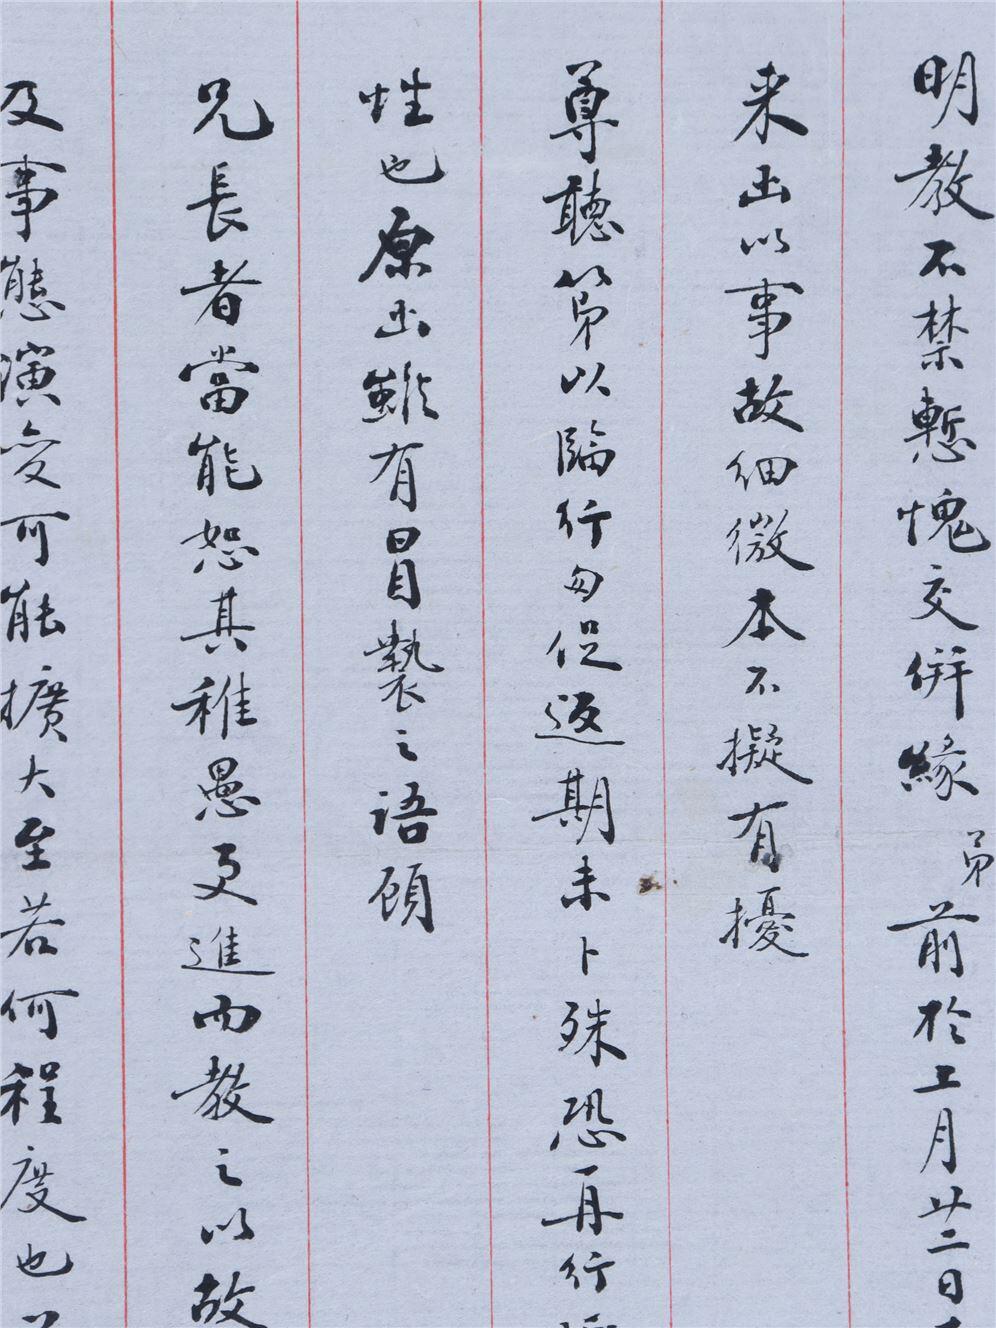 明教不禁慙愧交併緣弟前於上月廿二日
来函以事故細微本不擬有擾
尊聽第以臨行匆促返期未卜殊恐再行
性也原函雖有冒褻之語顧
兄長者當能恕其稚愚更進而教之以故
及事態演变可能擴大至若何程度也